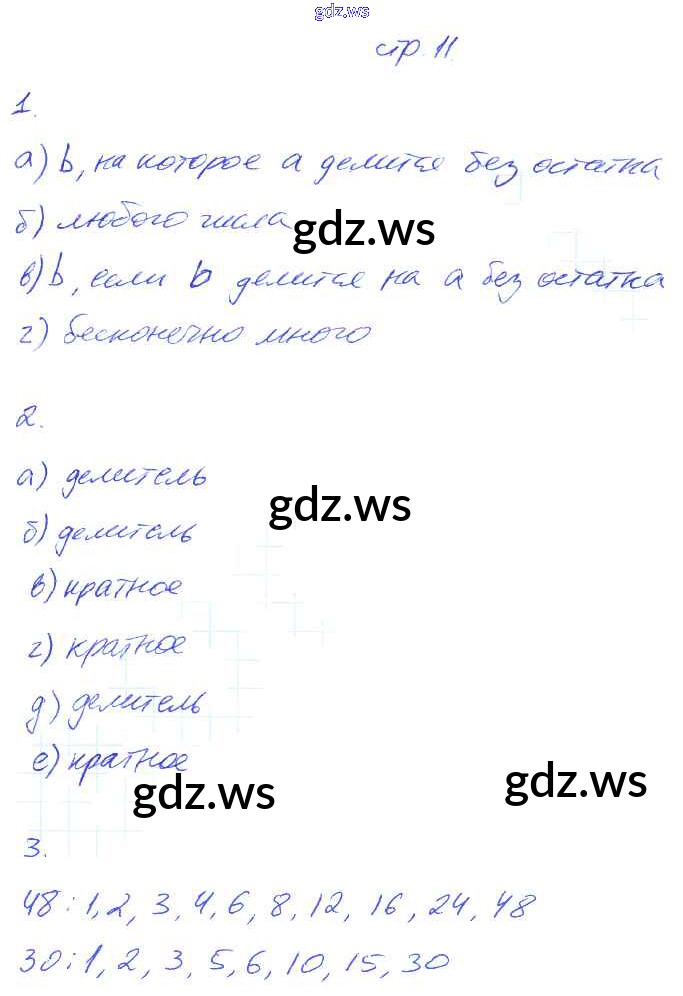 gdz.ws
стр. 11.
1.
а) b, на которое а делится без остатка
б) любого числа
gdz.ws
в) b, если b делится на а без остатка
г) бесконечно много
2.
а) делитель
gdz.ws
б) делитель
в) кратное
г) кратное
д) делитель
е) кратное
gdz.ws
gdz.ws
3.
48: 1, 2, 3, 4, 6, 8, 12, 16, 24, 48
30: 1, 2, 3, 5, 6, 10, 15, 30